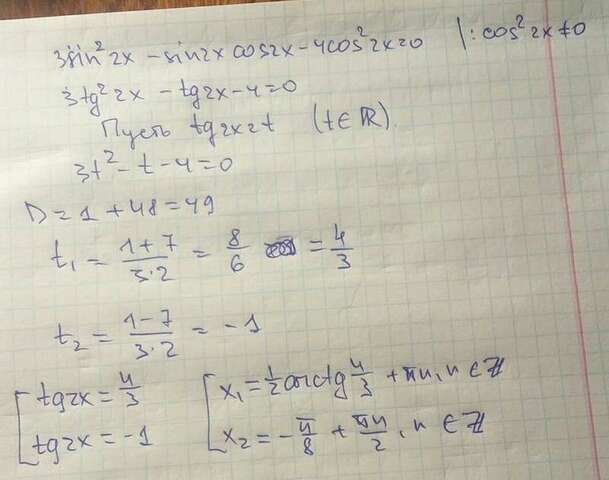 3sin² 2x - sin2x cos2x - 4cos² 2x = 0 |: cos² 2x ≠ 0
3tg² 2x - tg2x - 4 = 0
Пусть tg2x = t (t ∈ ℝ).
3t² - t - 4 = 0
D = 1 + 48 = 49
t₁ = (1+7)/(3·2) = 8/6 = 4/3
t₂ = (1-7)/(3·2) = -1
[ tg2x = 4/3 [ x₁ = 1/2 arctg 4/3 + πn, n ∈ ℤ
tg2x = -1 x₂ = -π/8 + πn/2, n ∈ ℤ